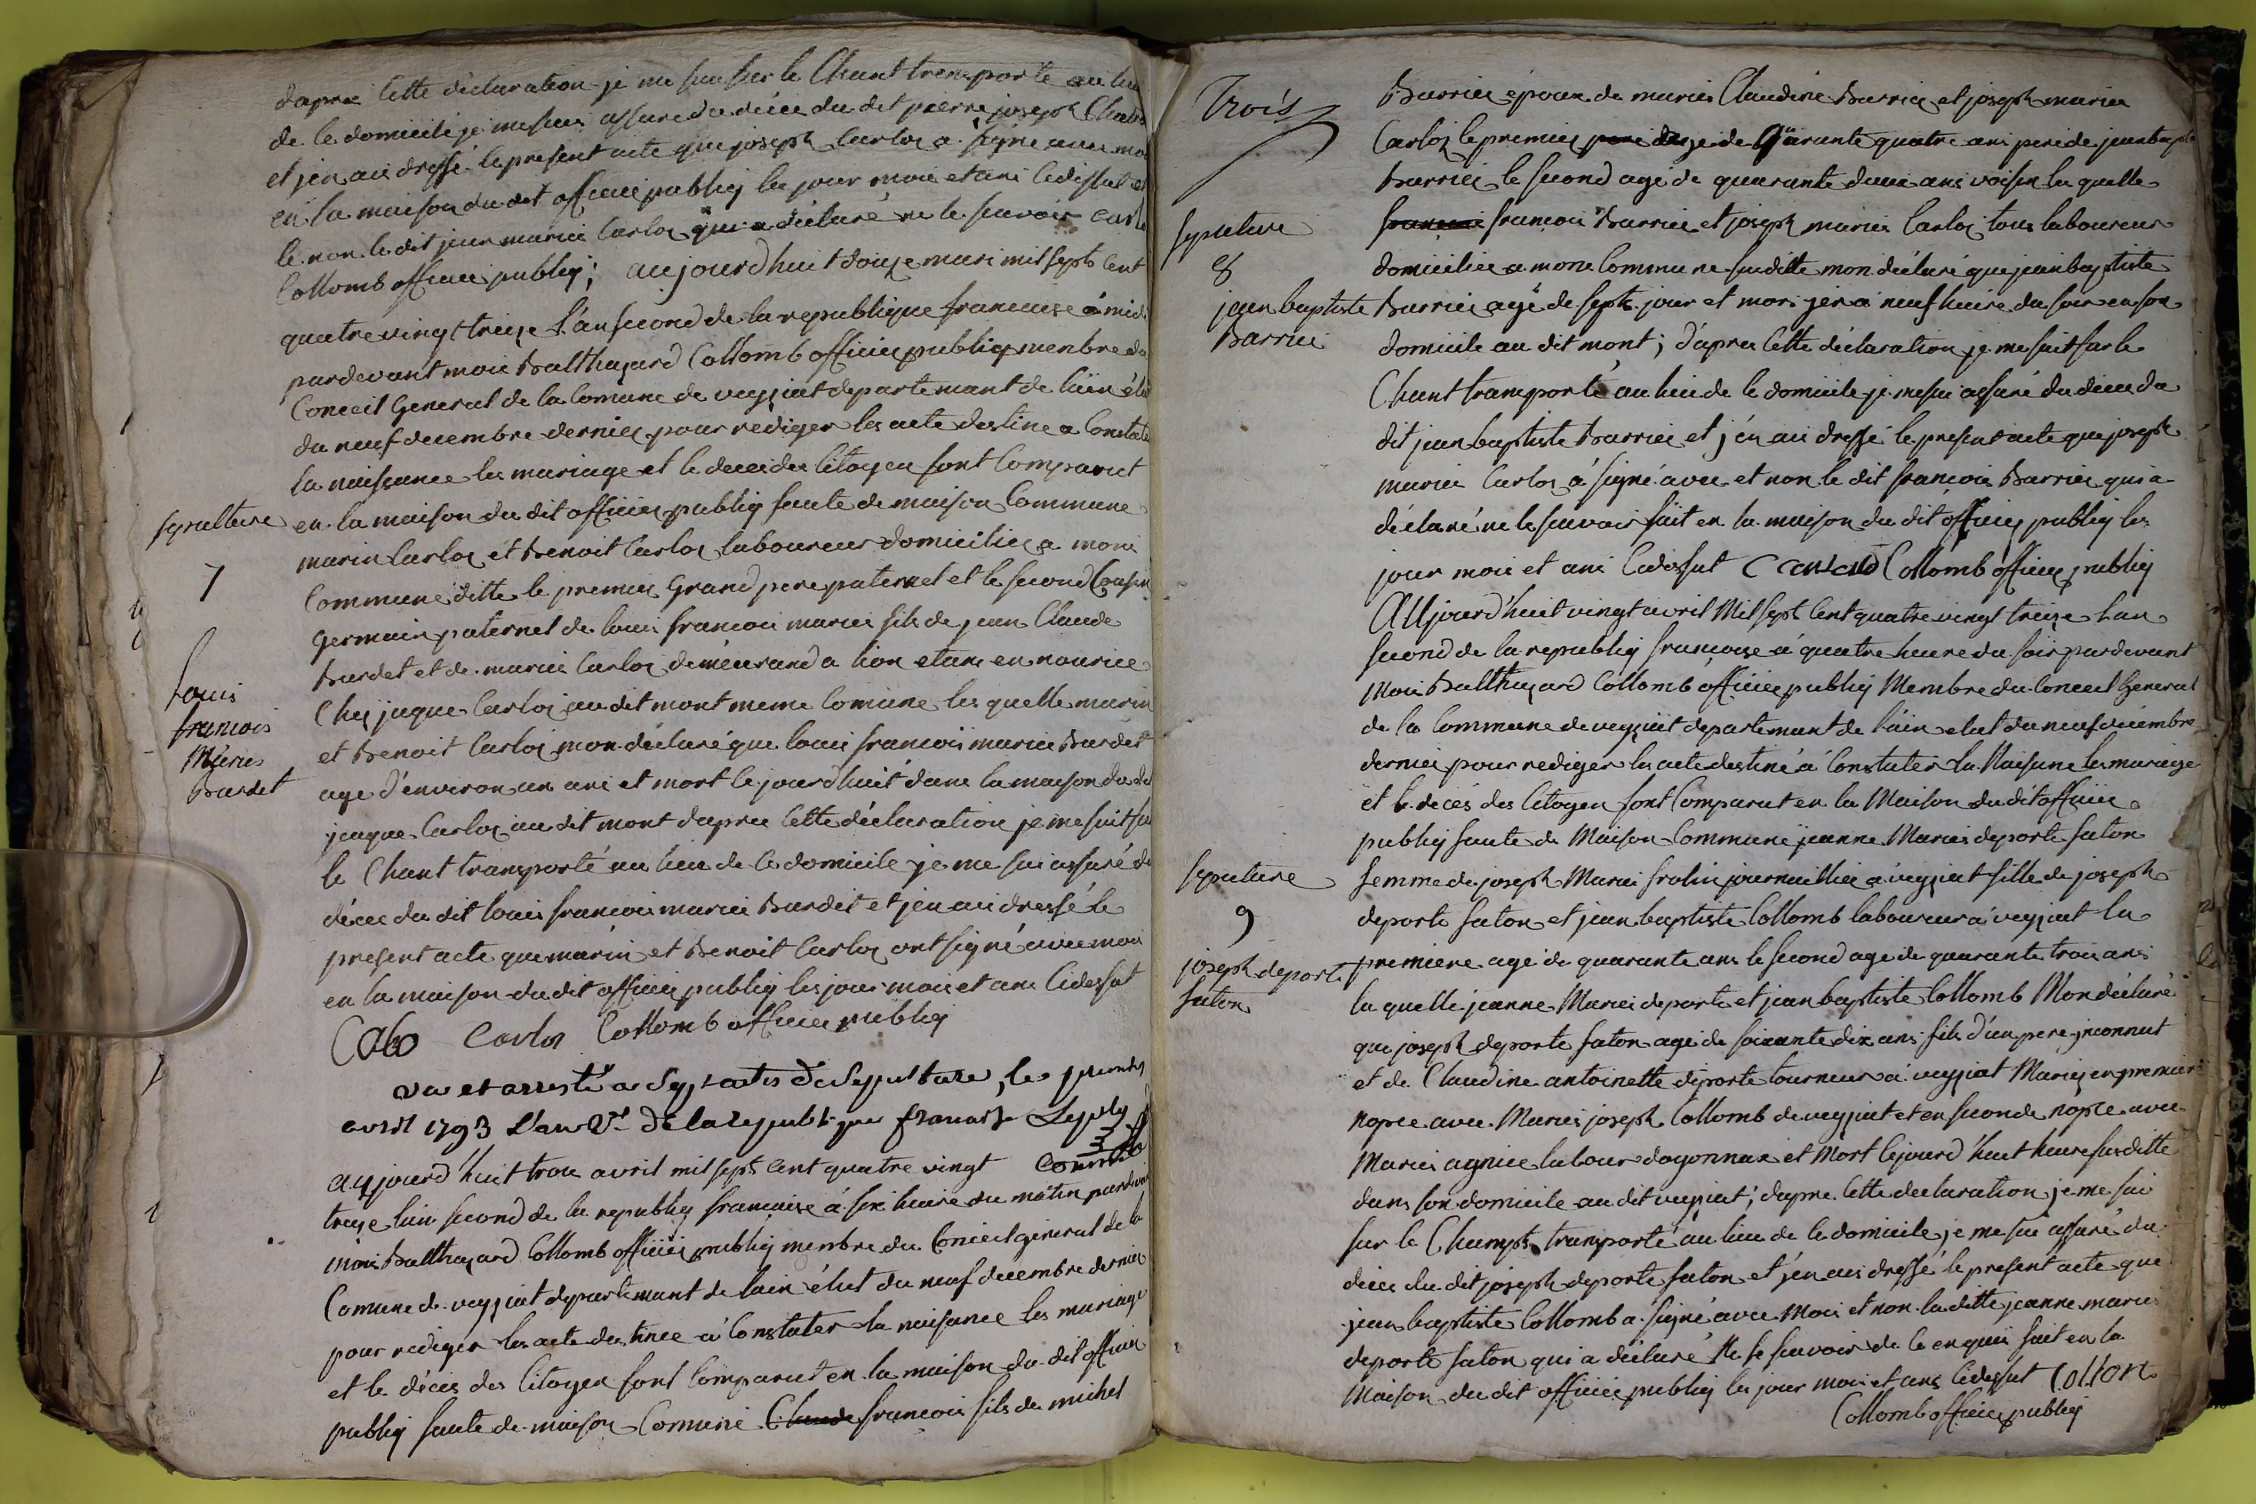 dapres cette declaration je me suis sur le Chant transporte au lieu
de le domicile je me suis assure du dèces du dit pierre joseph
et jen ais dressé le present acte que joseph Carloz a signe avec moi
en la maison du dit officier publiq les jour mois et ans cidessut et
le non le dit jean marie Carloz qui a déclaré ne le savoir
Collomb officier publiq; aujourdhuit douze mars mil sept cent
quatre vingt treize l'an second de la republique francaise à midi
pardevant mois Balthazard Collomb officier publiq menbre du
Conceil General de la Comune de veyziat departemant de l'ain élu
du neuf decembre dernier pour rediger les acte destine a Constate
la naissance les mariage et le deces des Citoyen sont Comparut
sepulture
en la maison du dit officier publiq faute de maison Commune
marin Carloz et Benoit Carloz laboureur domicilier a mons
7
Commune ditte le premier Grand pere paternel et le second Cousin
Germain paternel de louis francois marie fils de jean Claude
Burdet et de marie Carloz demeurand a lion etans en nourice
Louis
francois
Marie
Burdet
Chez jaque Carloz au dit mont meme Comune les quelle marin
et Benoit Carloz mon déclaré que louis francois marie Burdet
age d'environ un ans et mort le jourdhuit dans la maison du dit
jaque Carloz au dit mont dapres Cette déclaration je me suit sur
le Chant transporté au lieu de le domicile je me sui assuré du
déces du dit louis francois marie Burdet et jen ais dressé le
present acte que marin et Benoit Carloz ont signé avec moi
en la maison du dit officier publiq les jour mois et ans Cidessut
Carlo Carloz Collomb officier publiq
vu et arresté a Sept actes de Sepulture, le premier
avril 1793 L'an 2e de la republique francaise
aujourd'huit trois avril mil sept cent quatre vingt
treize lan second de la republiq francaise à six heure du matin pardevant
mois Balthazard Collomb officier publiq menbre du Conceil general de la
Comune de veyziat departemant de lain élut du neuf decembre dernier
pour rediger les acte destinee a Constater la naisance les mariage
et le décès des Citoyen sont Comparut en la maison du dit officier
publiq faute de maison Comune Claude francois fils de michel
Trois
Barrier époux de marie Claudine Barrier et joseph marie
Carloz le premier agé de quarante quatre ans pere de jean baptiste
Barrier le second agé de quarante deux ans voisin les quelle
sepulture
8
jean baptiste
Barrier
francois francois Barrier et joseph marie Carloz tous laboureur
domicilier a mons Commune susditte mon déclaré que jean baptiste
Barrier agé de sept jour et mors yer a neuf heure du soir en son
domicile au dit mont; d'apres Cette déclaration je me suit sur le
Chant transporté au lieu de le domicile je me sui assuré du déces du
dit jean baptiste Barrier et j'en ais dressé le present acte que joseph
marie Carloz à signé avec et non le dit francois Barrier qui a
déclaré ne le savoir fait en la maison du dit officier publiq les
jour mois et ans Cidessut Collomb officier publiq
Aujourd'huit vingt avril Mil sept Cent quatre vingt treize lan
second de la republiq francaise à quatre heure du soir pardevant
mois Balthazard Collomb officier publiq Membre du Conceil General
de la Commune de veyziat departemant de l'ain elut du neuf décembre
dernier pour rediger les acte destiné à Constater la Naisance les mariage
et le décés des Citoyen sont Comparut en la Maison du dit officier
publiq faute de Maison Commune jeanne Marie deporte faton
sepulture
9
joseph deporte
faton
femme de joseph Marie frolin journaillier a veyziat fille de joseph
deporte faton et jean baptiste Collomb laboureur a veyziat la
premiere age de quarante ans le second age de quarante trois ans
la quelle jeanne Marie deporte et jean baptiste Collomb Mon déclaré
que joseph deporte faton agé de soixante dix ans fils d'un pere jnconnut
et de Claudine antoinette déporte tourneur a veyziat Mariez en premiere
nopce avec Marie joseph Collomb de veyziat et en seconde nopce avec
Marie agnice labour doyonnax et Mort lejourd'huit heure susditte
dans son domicile au dit veyziat; dapre Cette declaration je me sui
sur le Champs transporté au lieu de le domicile je me sui assuré du
déces du dit joseph deporte faton et j'en ais dressé le present acte que
jean baptiste Collomb a signé avec Moi et non la ditte jeanne marie
deporte faton qui a déclaré Ne le savoir de le enquis fait en la
Maison du dit officier publiq les jour mois et ans Cidessut Collon
Collomb officier publiq